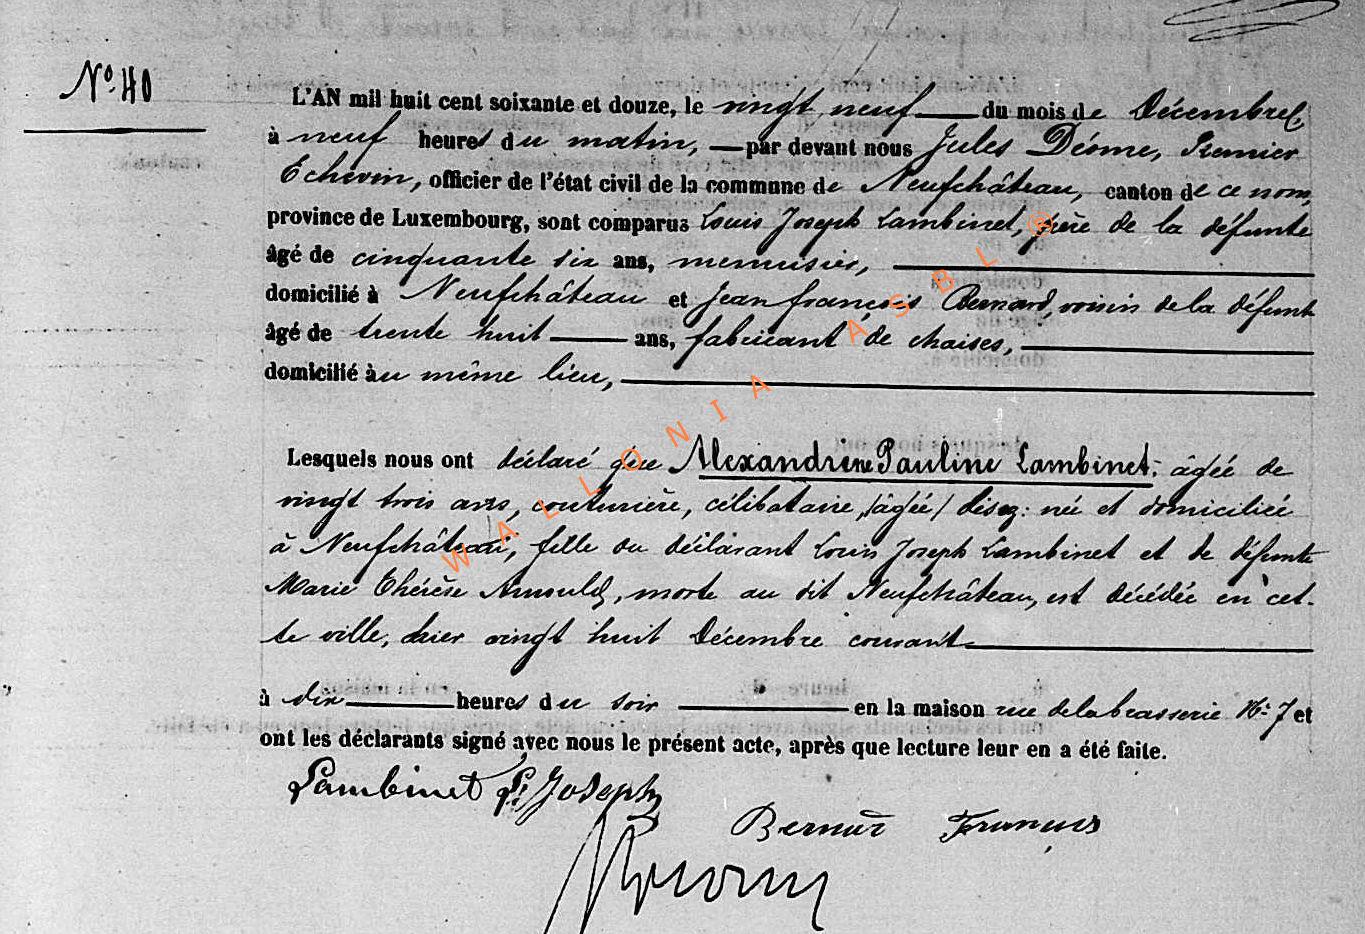 N.º 40
L'AN mil huit cent soixante et douze, le vingt neuf du mois de Décembre
à neuf heures du matin, par devant nous Jules Déome, Premier
Echevin, officier de l'état civil de la commune de Neufchâteau, canton de ce nom,
province de Luxembourg, sont comparus Louis Joseph Lambinet, père de la défunte
âgé de cinquante six ans, menuisier,
domicilié à Neufchâteau et Jean françois Bernard, voisin de la défunte
âgé de trente huit ans, fabricant de chaises,
domicilié au même lieu,
Lesquels nous ont déclaré que Alexandrine Pauline Lambinet: âgée de
vingt trois ans, couturière, célibataire, /âgée/ disez: née et domiciliée
à Neufchâteau, fille du déclarant Louis Joseph Lambinet et de défunte
Marie Thérèse Arnould, morte au dit Neufchâteau, est décédée en cet-
te ville, hier vingt huit Décembre courant
à dix heures du soir en la maison rue de la brasserie N.º 7 et
ont les déclarants signé avec nous le présent acte, après que lecture leur en a été faite.
Lambinet Ls Joseph
Bernard François
WALLONIA ASBL ®